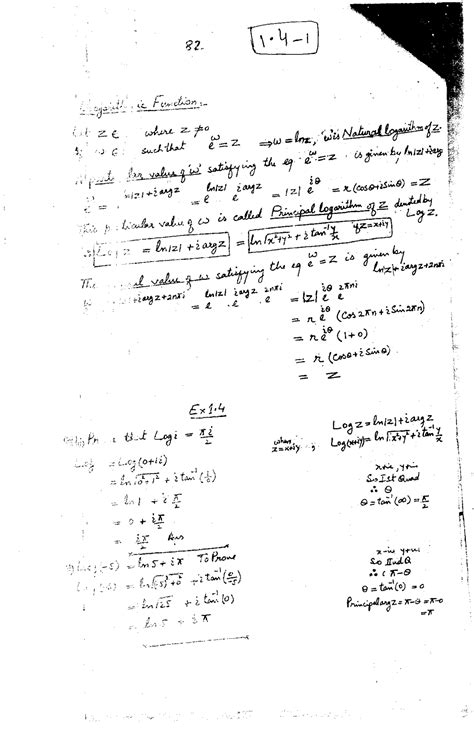 82.
1.4-1
Function:-
z ∈ where z ≠ 0
such that e^w = z ⇒ w = lnz, w is Natural logarithm of z.
value of w satisfying the eq e^w = z is given by ln|z|+iargz
= e^ln|z|+iargz = e^ln|z| . e^iargz = |z| e^iθ = r(cosθ+iSinθ) = z
This particular value of w is called Principal logarithm of z denoted by
Log z.
Log z = ln|z| + iargz = ln√x²+y² + i tan⁻¹ y/x if z=x+iy
The value of w satisfying the eq e^w = z is given by
ln|z|+iargz+2nπi
+iargz+2nπi = e^ln|z| . e^iargz . e^2nπi = |z| e^iθ e^2πni
= r e^iθ (Cos2πn+iSin2πn)
= r e^iθ (1+0)
= r (Cosθ+iSinθ)
= z
Ex 1.4
that Log i = πi/2
Log z = ln|z|+iargz
when z=x+iy , Log(x+iy) = ln√x²+y² + i tan⁻¹ y/x
= Log(0+1i)
= ln√0²+1² + i tan⁻¹(1/0)
= ln 1 + i π/2
= 0 + i π/2
= iπ/2 Ans
x+iv, y+iv
So Ist Quad
∴ θ
θ = tan⁻¹(∞) = π/2
Log(-5) = ln5 + iπ To Prove
Log(-5) = ln√(-5)²+0² + i tan⁻¹(0/-5)
= ln√25 + i tan⁻¹(0)
= ln 5 + iπ
x-iv y+iv
So IInd Q
∴ π-θ
θ = tan⁻¹(0) = 0
Principal arg z = π-θ = π-0
= π